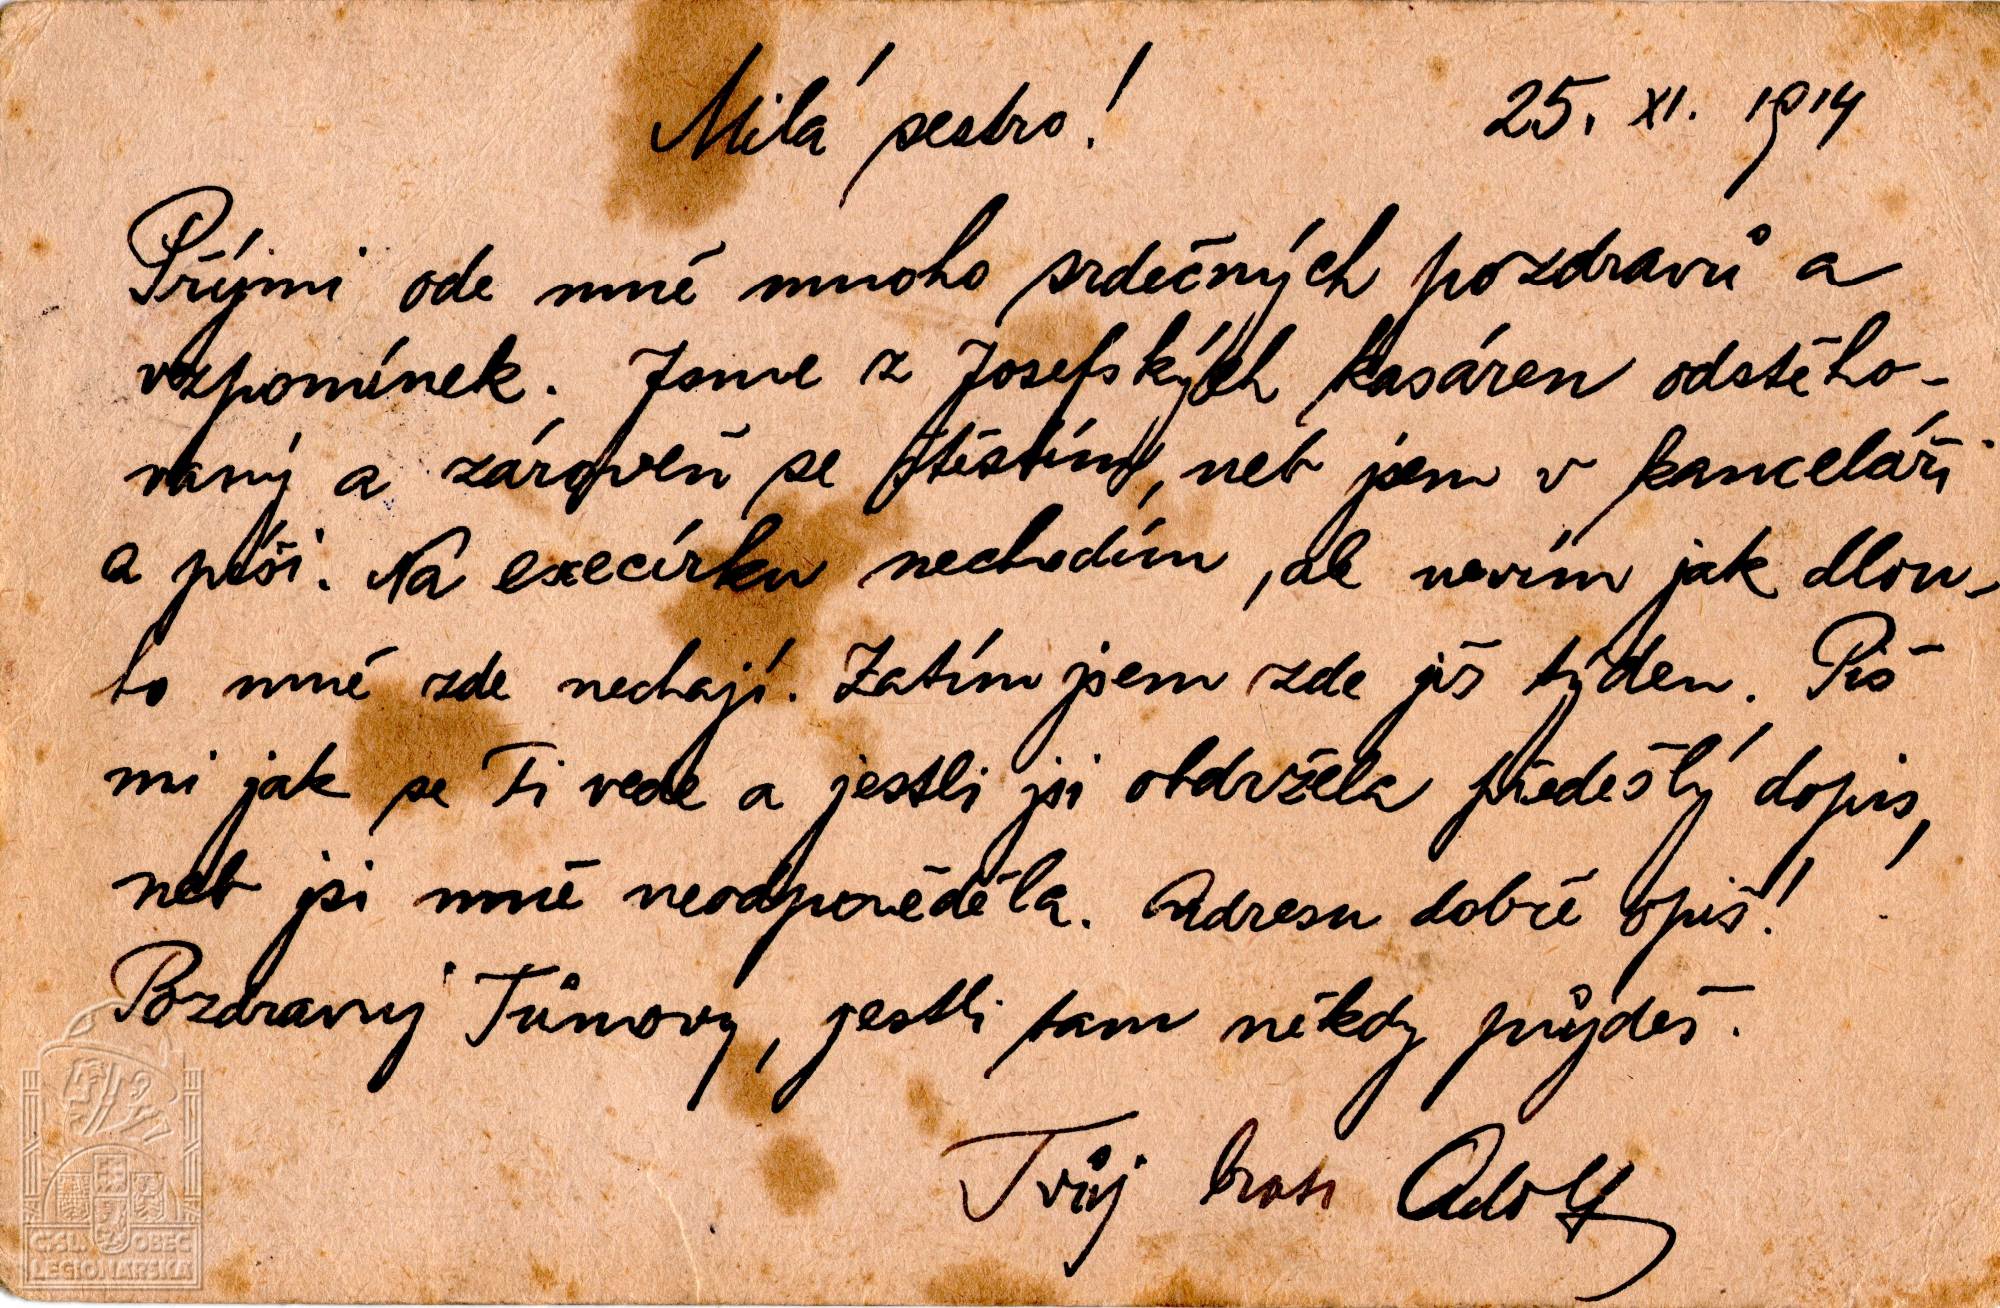 Milá sestro! 25. XI. 1914
Přijmi ode mně mnoho srdečných pozdravů a
vzpomínek. Jsme z Josefských kasáren odstěho-
vaný a zároveň se štěstím, neb jsem v kanceláři
a píši. Na execírku nechodím, ale nevím jak dlou-
ho mně zde nechají. Zatím jsem zde již týden. Piš
mi jak se Ti vede a jestli jsi obdržela předešlý dopis,
neb jsi mně neodpověděla. Adresu dobře opiš!
Pozdravuj Tůmovy, jestli tam někdy půjdeš.
Tvůj bratr Adolf
ČSL. OBEC
LEGIONÁŘSKÁ